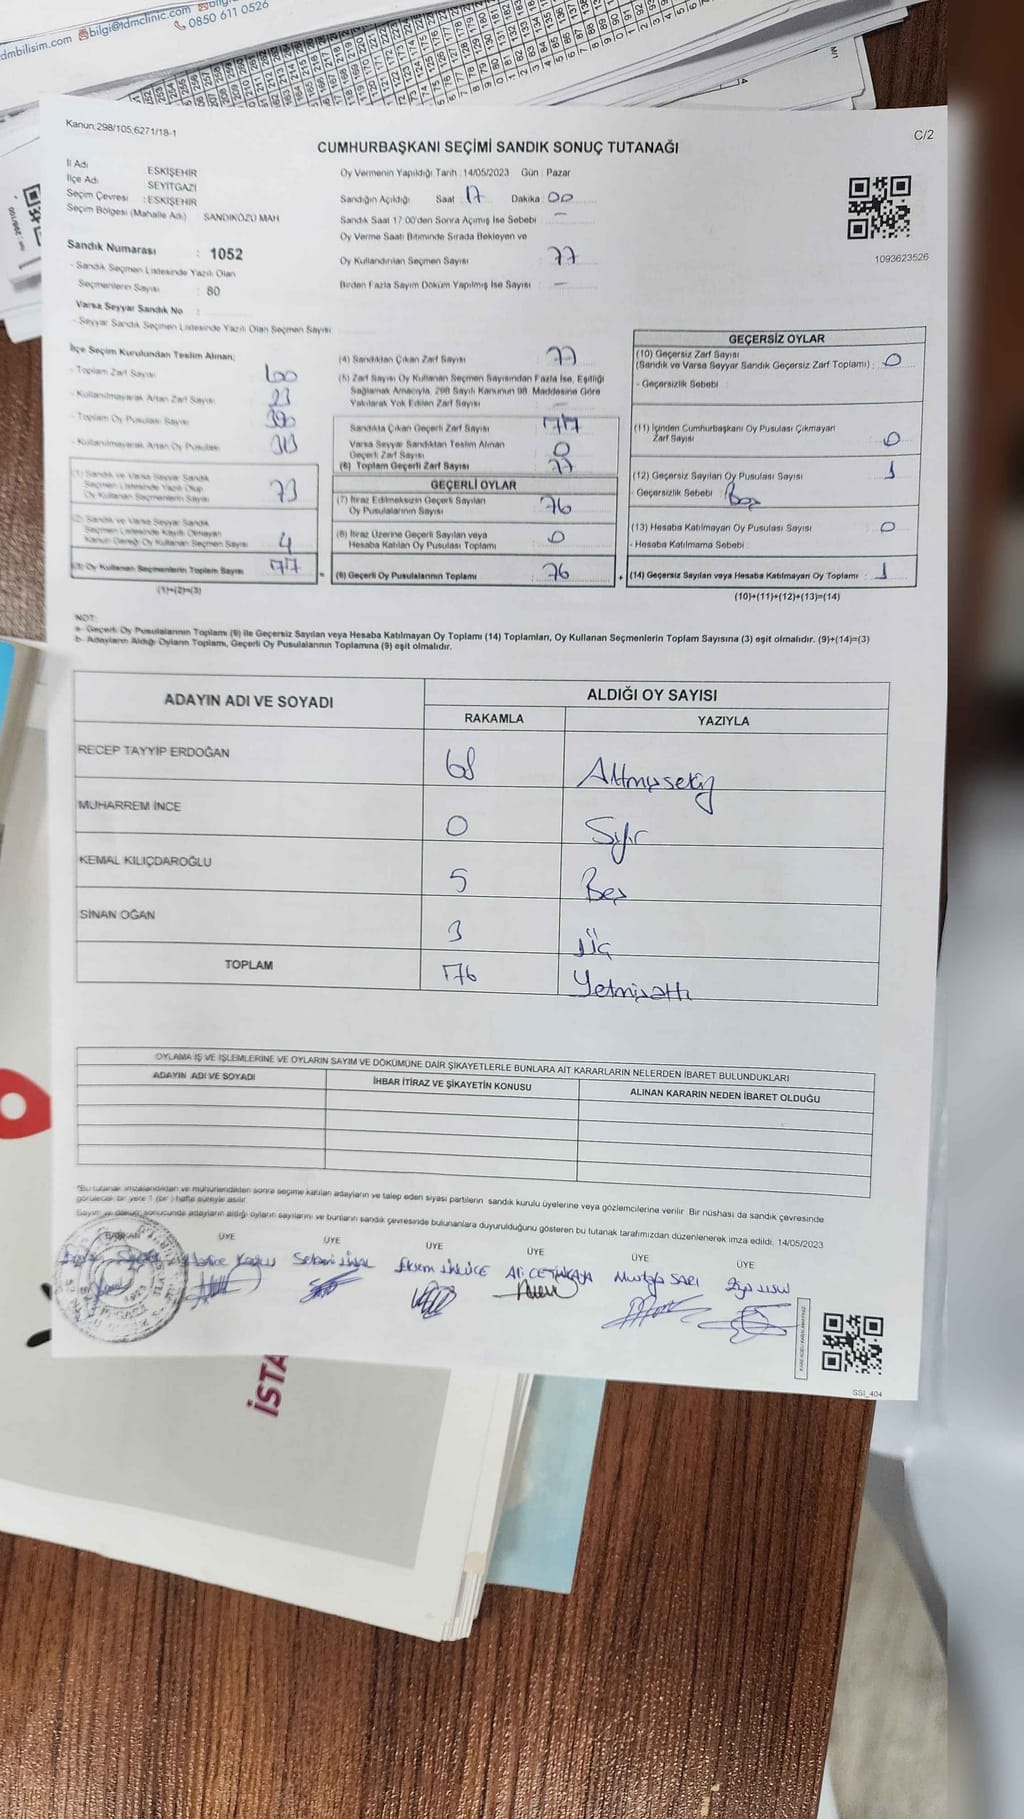 dmbilisim.com bilgi@tdmclinic.com
0850 611 0526
Kanun;298/105,6271/18-1
C/2
CUMHURBAŞKANI SEÇİMİ SANDIK SONUÇ TUTANAĞI
İl Adı : ESKİŞEHİR
İlçe Adı SEYİTGAZİ
Seçim Çevresi : ESKİŞEHİR
Seçim Bölgesi (Mahalle Adı) : SANDIKÖZÜ MAH
Sandık Numarası : 1052
- Sandık Seçmen Listesinde Yazılı Olan
Seçmenlerin Sayısı : 80
Varsa Seyyar Sandık No :
- Seyyar Sandık Seçmen Listesinde Yazılı Olan Seçmen Sayısı
Oy Vermenin Yapıldığı Tarih : 14/05/2023 Gün : Pazar
Sandığın Açıldığı Saat : 17 Dakika : 00
Sandık Saat 17.00'den Sonra Açılmış İse Sebebi : —
Oy Verme Saati Bitiminde Sırada Bekleyen ve
Oy Kullandırılan Seçmen Sayısı : 77
Birden Fazla Sayım Döküm Yapılmış İse Sayısı : —
1093623526
İlçe Seçim Kurulundan Teslim Alınan;
- Toplam Zarf Sayısı
- Kullanılmayarak Artan Zarf Sayısı : 23
- Toplam Oy Pusulası Sayısı
- Kullanılmayarak Artan Oy Pusulası
(1) Sandık ve Varsa Seyyar Sandık
Seçmen Listesinde Yazılı Olup
Oy Kullanan Seçmenlerin Sayısı : 73
(2) Sandık ve Varsa Seyyar Sandık
Seçmen Listesinde Kayıtlı Olmayan
Kanun Gereği Oy Kullanan Seçmen Sayısı : 4
(3) Oy Kullanan Seçmenlerin Toplam Sayısı : 77
(1)+(2)=(3)
(4) Sandıktan Çıkan Zarf Sayısı : 77
(5) Zarf Sayısı Oy Kullanan Seçmen Sayısından Fazla İse, Eşitliği
Sağlamak Amacıyla, 298 Sayılı Kanunun 98. Maddesine Göre
Yakılarak Yok Edilen Zarf Sayısı : —
Sandıkta Çıkan Geçerli Zarf Sayısı : 77
Varsa Seyyar Sandıktan Teslim Alınan
Geçerli Zarf Sayısı : 0
(6) Toplam Geçerli Zarf Sayısı : 77
GEÇERLİ OYLAR
(7) İtiraz Edilmeksizin Geçerli Sayılan
Oy Pusulalarının Sayısı : 76
(8) İtiraz Üzerine Geçerli Sayılan veya
Hesaba Katılan Oy Pusulası Toplamı : 0
(9) Geçerli Oy Pusulalarının Toplamı : 76
GEÇERSİZ OYLAR
(10) Geçersiz Zarf Sayısı
(Sandık ve Varsa Seyyar Sandık Geçersiz Zarf Toplamı) : 0
- Geçersizlik Sebebi :
(11) İçinden Cumhurbaşkanı Oy Pusulası Çıkmayan
Zarf Sayısı : 0
(12) Geçersiz Sayılan Oy Pusulası Sayısı : 1
- Geçersizlik Sebebi : Boş
(13) Hesaba Katılmayan Oy Pusulası Sayısı : 0
- Hesaba Katılmama Sebebi :
(14) Geçersiz Sayılan veya Hesaba Katılmayan Oy Toplamı : 1
(10)+(11)+(12)+(13)=(14)
NOT:
a- Geçerli Oy Pusulalarının Toplamı (9) ile Geçersiz Sayılan veya Hesaba Katılmayan Oy Toplamı (14) Toplamları, Oy Kullanan Seçmenlerin Toplam Sayısına (3) eşit olmalıdır. (9)+(14)=(3)
b- Adayların Aldığı Oyların Toplamı, Geçerli Oy Pusulalarının Toplamına (9) eşit olmalıdır.
ADAYIN ADI VE SOYADI ALDIĞI OY SAYISI
RAKAMLA YAZIYLA
RECEP TAYYİP ERDOĞAN 68 Altmışsekiz
MUHARREM İNCE 0 Sıfır
KEMAL KILIÇDAROĞLU 5 Beş
SİNAN OĞAN 3 Üç
TOPLAM 76 Yetmişaltı
OYLAMA İŞ VE İŞLEMLERİNE VE OYLARIN SAYIM VE DÖKÜMÜNE DAİR ŞİKAYETLERLE BUNLARA AİT KARARLARIN NELERDEN İBARET BULUNDUKLARI
ADAYIN ADI VE SOYADI İHBAR İTİRAZ VE ŞİKAYETİN KONUSU ALINAN KARARIN NEDEN İBARET OLDUĞU
*Bu tutanak imzalandıktan ve mühürlendikten sonra seçime katılan adayların ve talep eden siyasi partilerin sandık kurulu üyelerine veya gözlemcilerine verilir. Bir nüshası da sandık çevresinde
görülecek bir yere 1 (bir) hafta süreyle asılır.
Sayım ve döküm sonucunda adayların aldığı oyların sayılarını ve bunların sandık çevresinde bulunanlara duyurulduğunu gösteren bu tutanak tarafımızdan düzenlenerek imza edildi. 14/05/2023
BAŞKAN ÜYE ÜYE ÜYE ÜYE ÜYE ÜYE
Ali ÇETİNKAYA Mustafa SARI
SSI_404
İSTA